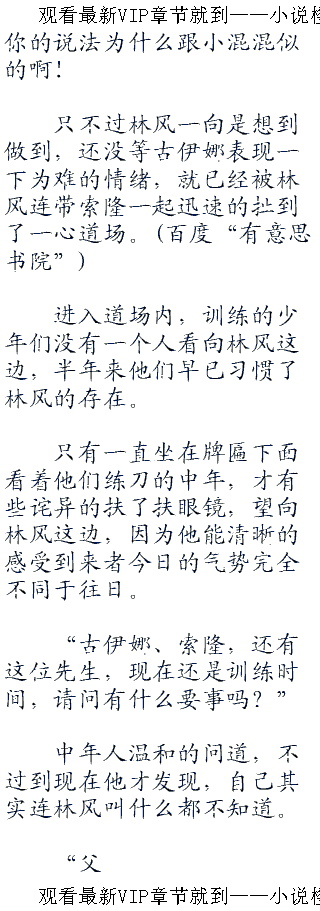 观看最新VIP章节就到——小说检
你的说法为什么跟小混混似
的啊！
只不过林风一向是想到
做到，还没等古伊娜表现一
下为难的情绪，就已经被林
风连带索隆一起迅速的扯到
了一心道场。(百度“有意思
书院”)
进入道场内，训练的少
年们没有一个人看向林风这
边，半年来他们早已习惯了
林风的存在。
只有一直坐在牌匾下面
看着他们练刀的中年，才有
些诧异的扶了扶眼镜，望向
林风这边，因为他能清晰的
感受到来者今日的气势完全
不同于往日。
“古伊娜、索隆，还有
这位先生，现在还是训练时
间，请问有什么要事吗？”
中年人温和的问道，不
过到现在他才发现，自己其
实连林风叫什么都不知道。
“父
观看最新VIP章节就到——小说检